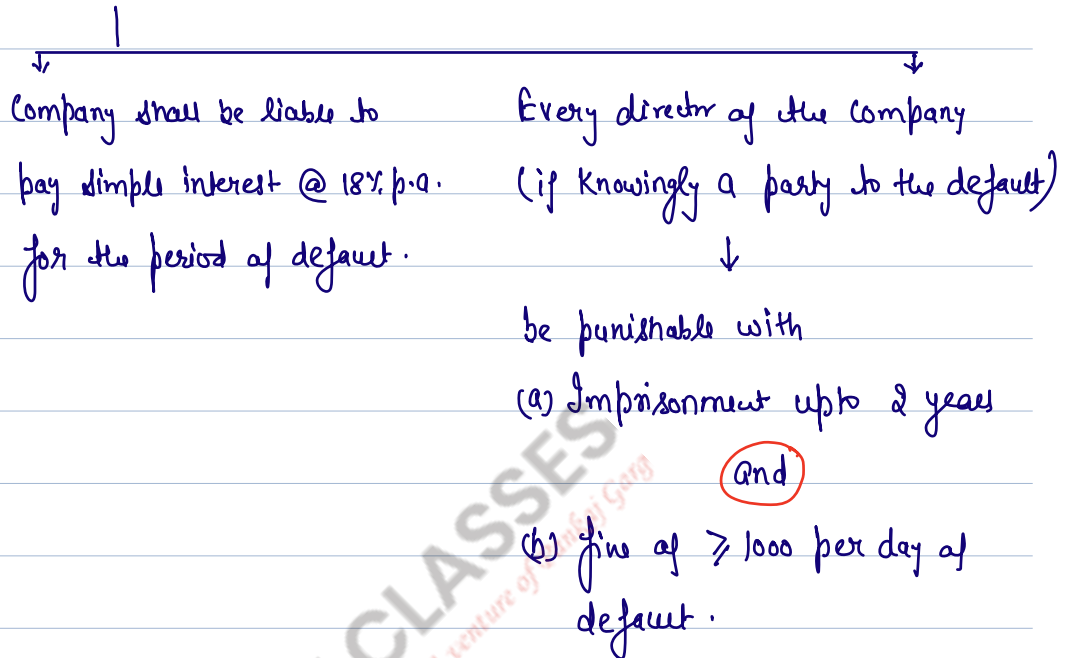 Company shall be liable to
pay simple interest @ 18% p.a.
for the period of default.
Every director of the company
(if knowingly a party to the default)
be punishable with
(a) Imprisonment upto 2 years
and
(b) fine of ≥ 1000 per day of
default.
CLASSES
venture of Pankaj Garg